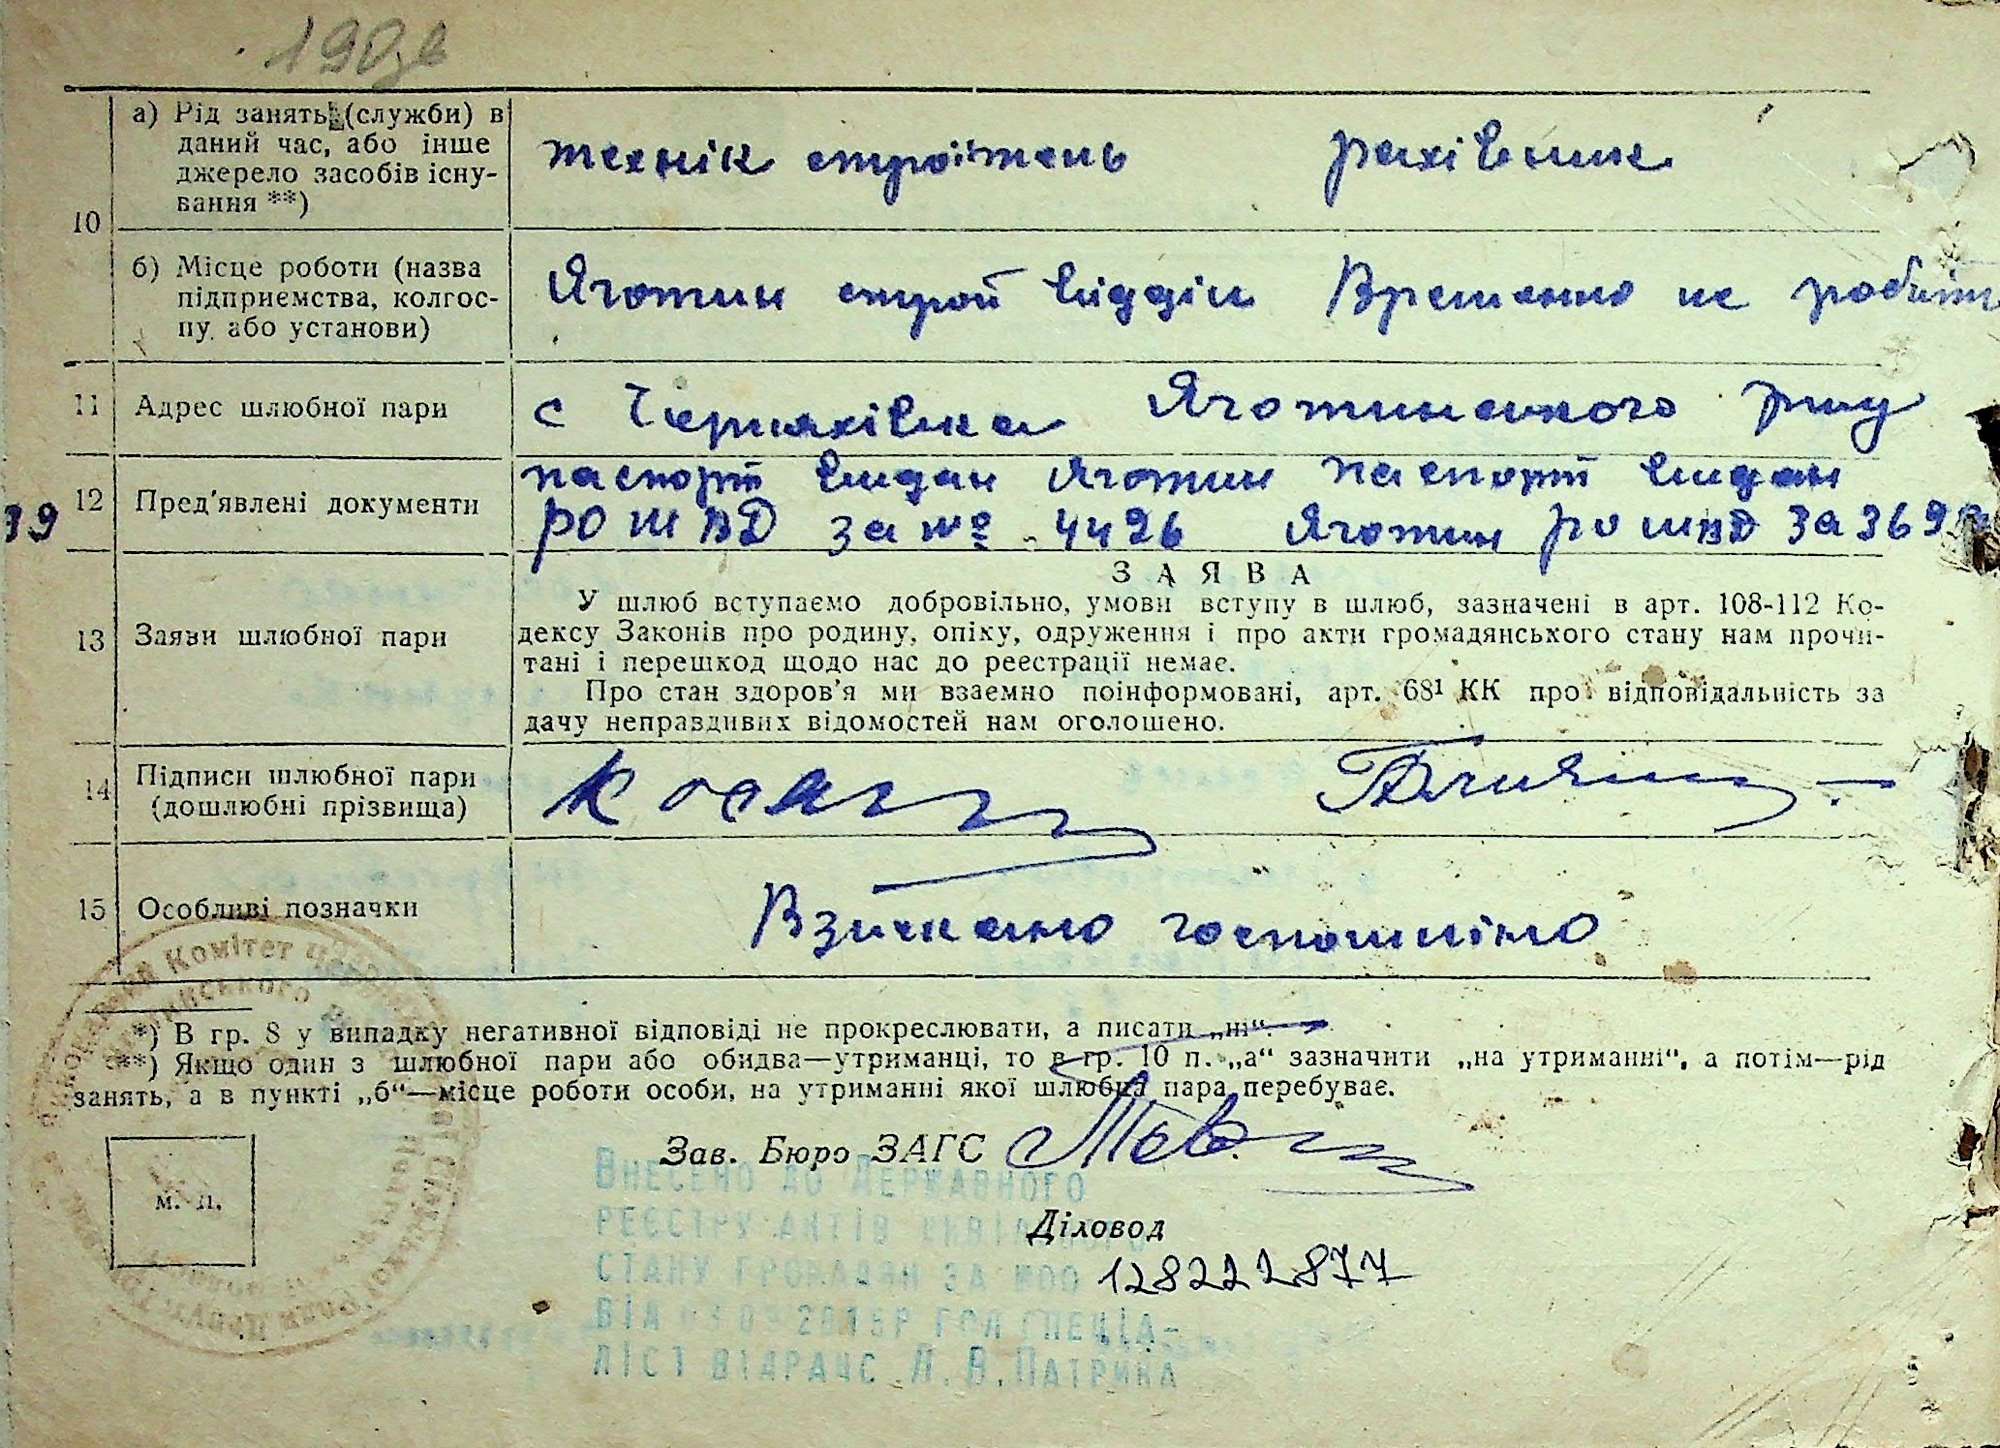 а) Рід занять (служби) в
даний час, або інше
джерело засобів існу-
вання **)
технік строітель рахівник
10
б) Місце роботи (назва
підприємства, колгос-
пу або установи)
Яготин строй відділ Временно не робить
11 Адрес шлюбної пари
с Черняхівка Яготинського р-ну
12 Пред'явлені документи
паспорт видан Яготин паспорт видан
39 РО МВД за № 4426 Яготин РО МВД за 369
13 Заяви шлюбної пари
ЗАЯВА
У шлюб вступаємо добровільно, умови вступу в шлюб, зазначені в арт. 108-112 Ко-
дексу Законів про родину, опіку, одруження і про акти громадянського стану нам прочи-
тані і перешкод щодо нас до реєстрації немає.
Про стан здоров'я ми взаємно поінформовані, арт. 68¹ КК про відповідальність за
дачу неправдивих відомостей нам оголошено.
14 Підписи шлюбної пари
(дошлюбні прізвища)
15 Особливі позначки
Взискано госпошліно
*) В гр. 8 у випадку негативної відповіді не прокреслювати, а писати „ні“.
**) Якщо один з шлюбної пари або обидва—утриманці, то в гр. 10 п. „а“ зазначити „на утриманні“, а потім—рід
занять, а в пункті „б“—місце роботи особи, на утриманні якої шлюбна пара перебуває.
Зав. Бюро ЗАГС
м. п.
Діловод
128222877
Внесено до Державного
реєстру актів цивільного
стану громадян за №00
від 2015р гол спеціа-
ліст відрацс Л.В.Патрика